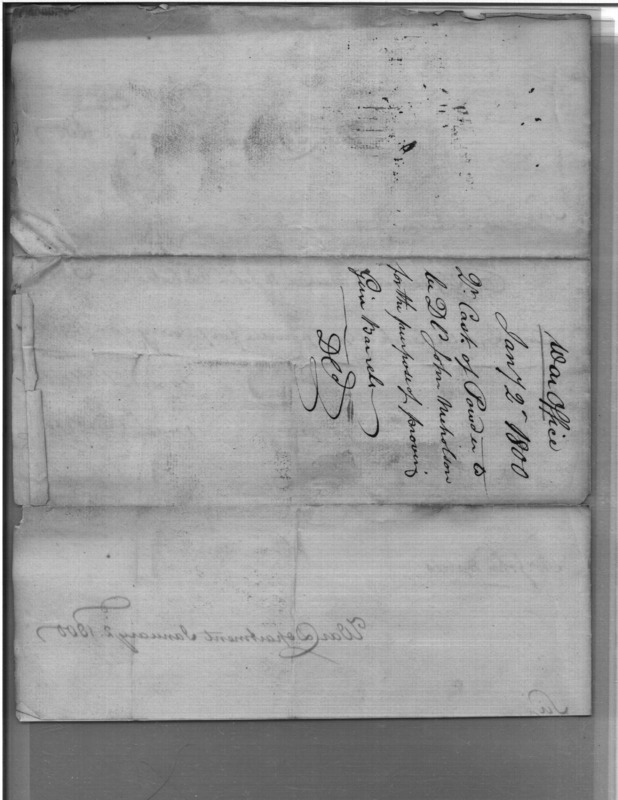 War Office
Jany 2d 1800
Dr. Cask of Powder to
be DD John Nicholson
for the purpose of proving
Gun Barrels
DCd
War Department January 2. 1800
Sir